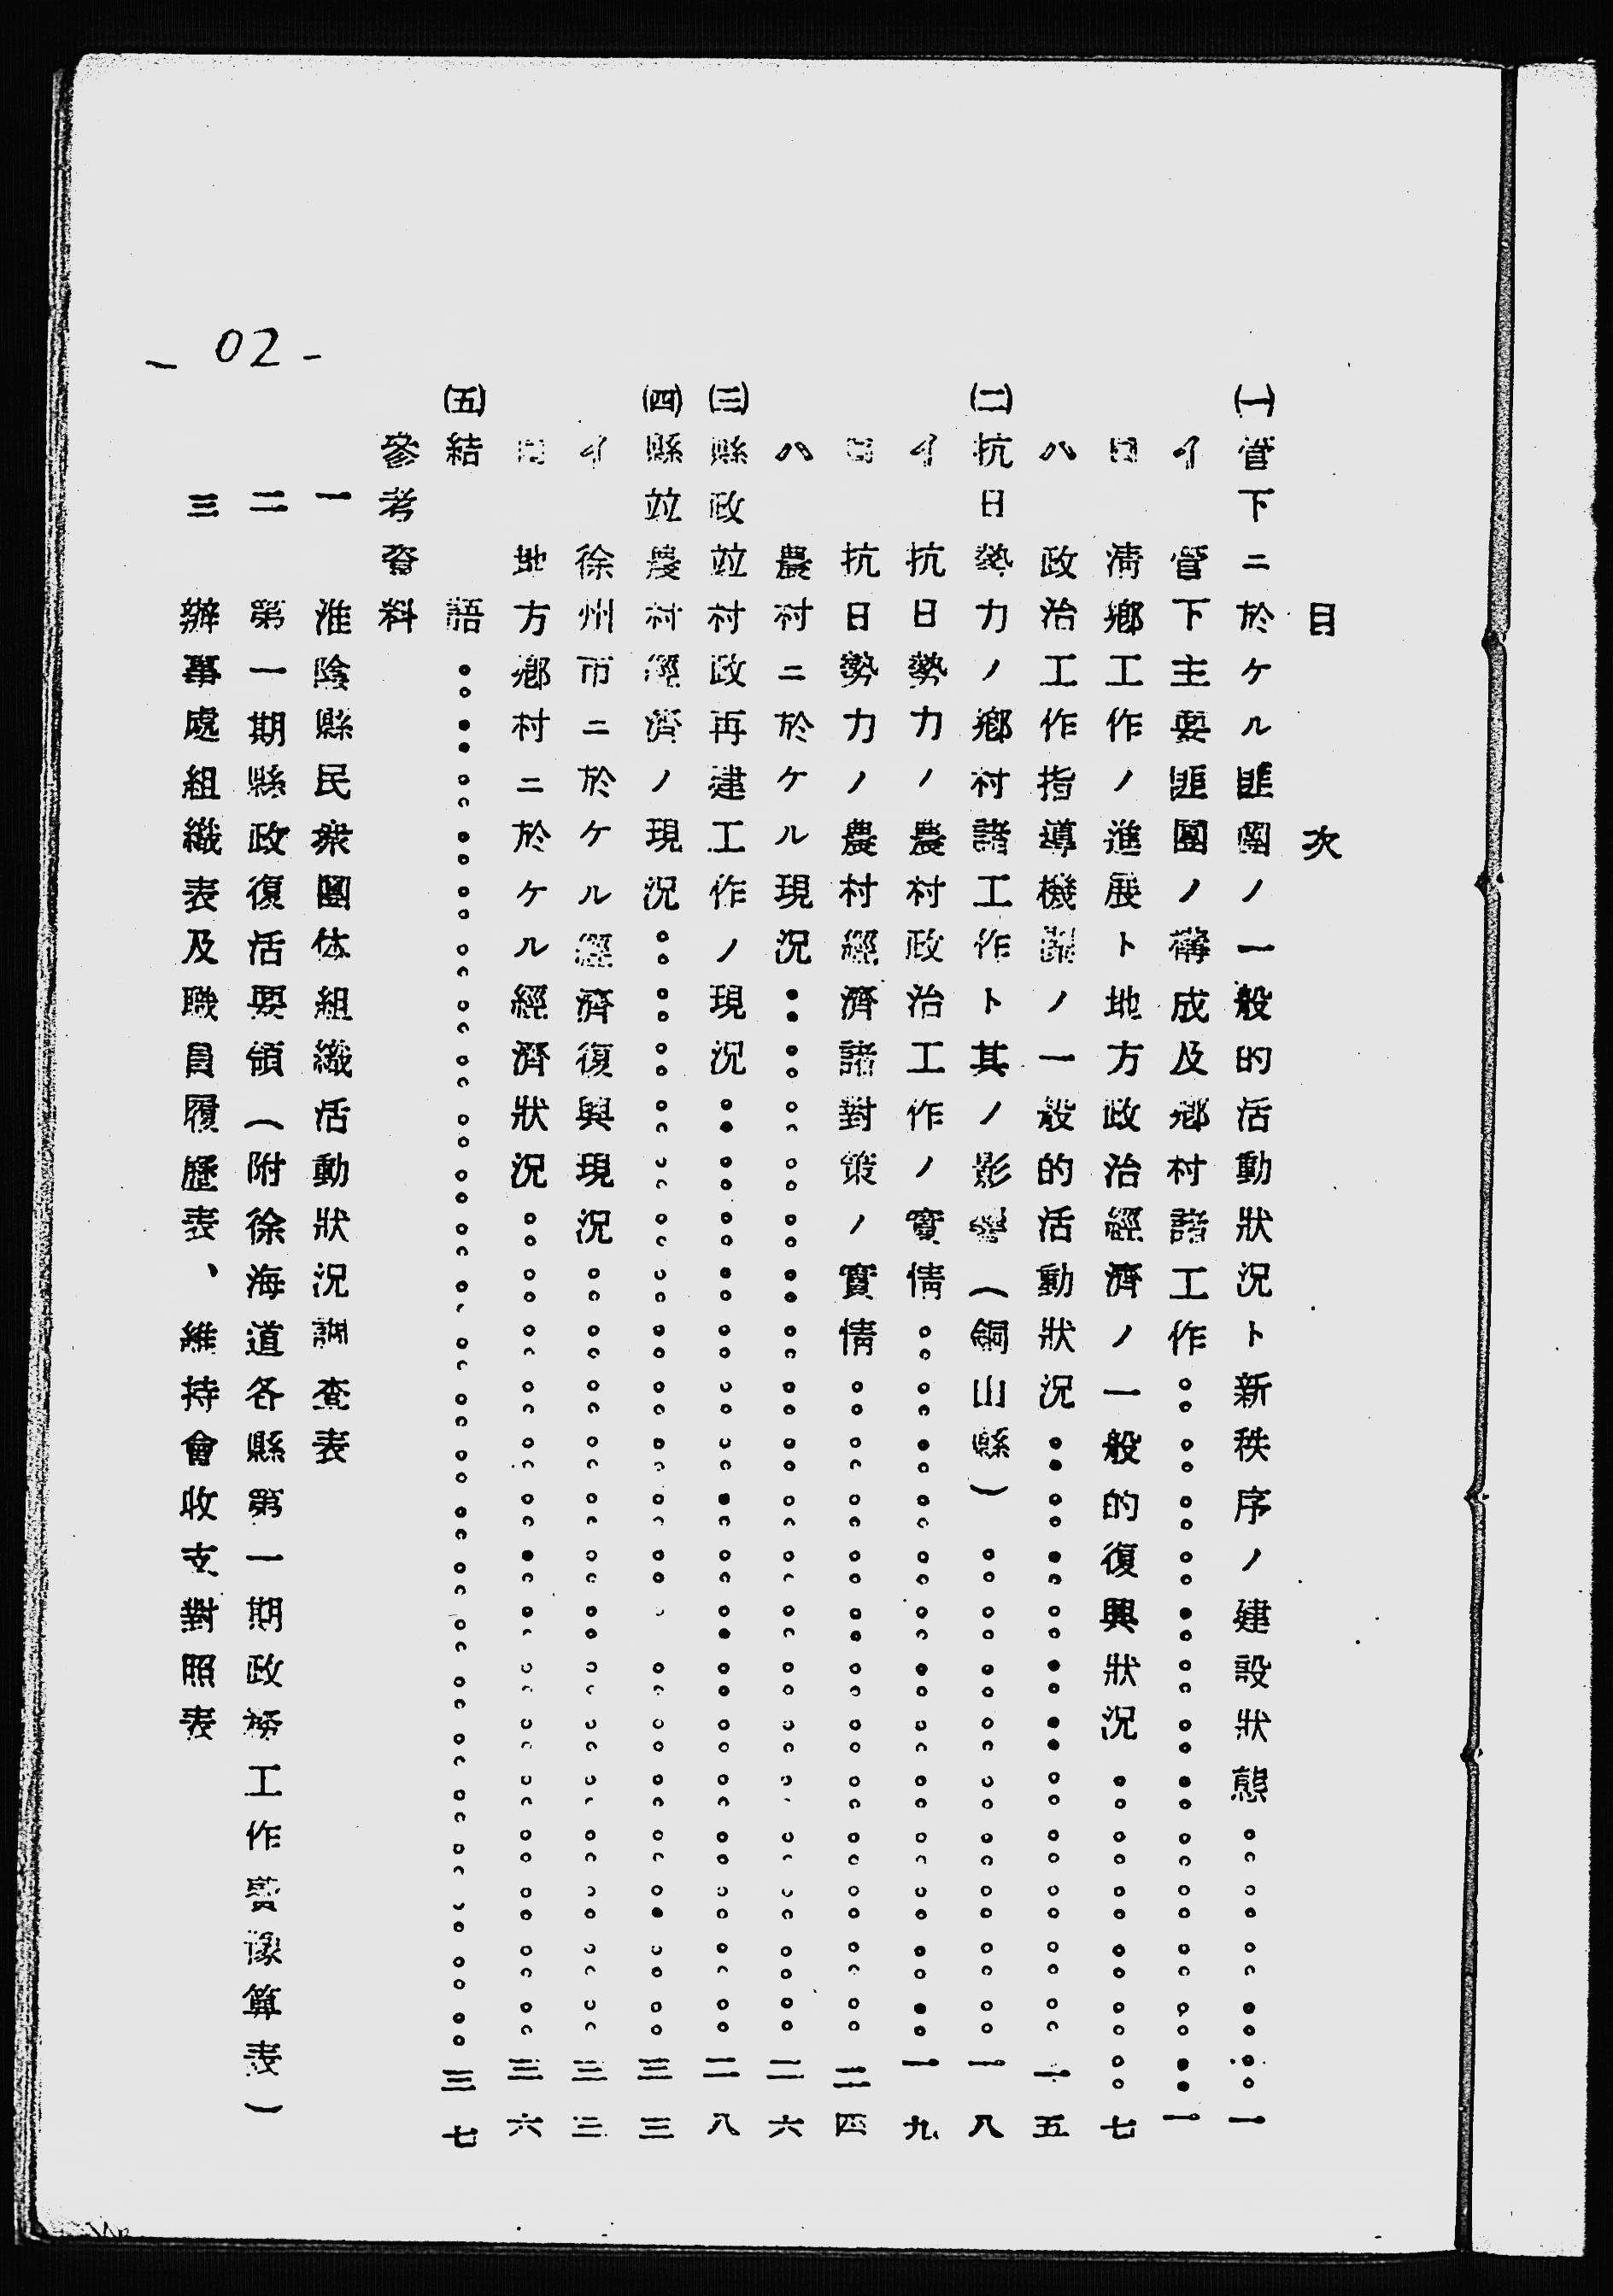 目次
㈠管下ニ於ケル匪團ノ一般的活動狀況ト新秩序ノ建設狀態………一
イ 管下主要匪團ノ構成及鄕村諸工作………一
ロ 淸鄕工作ノ進展ト地方政治經濟ノ一般的復興狀況………七
ハ 政治工作指導機關ノ一般的活動狀況………一五
㈡抗日勢力ノ鄕村諸工作ト其ノ影響(銅山縣)………一八
イ 抗日勢力ノ農村政治工作ノ實情………一九
ロ 抗日勢力ノ農村經濟諸對策ノ實情………二四
ハ 農村ニ於ケル現況………二六
㈢縣政竝村政再建工作ノ現況………二八
㈣縣竝農村經濟ノ現況………三三
イ 徐州市ニ於ケル經濟復興現況………三三
ロ 地方鄕村ニ於ケル經濟狀況………三六
㈤結語………三七
參考資料
一 淮陰縣民衆團体組織活動狀況調査表
二 第一期縣政復活要領(附徐海道各縣第一期政務工作費豫算表)
三 辦事處組織表及職員履歷表、維持會收支對照表
- 02 -